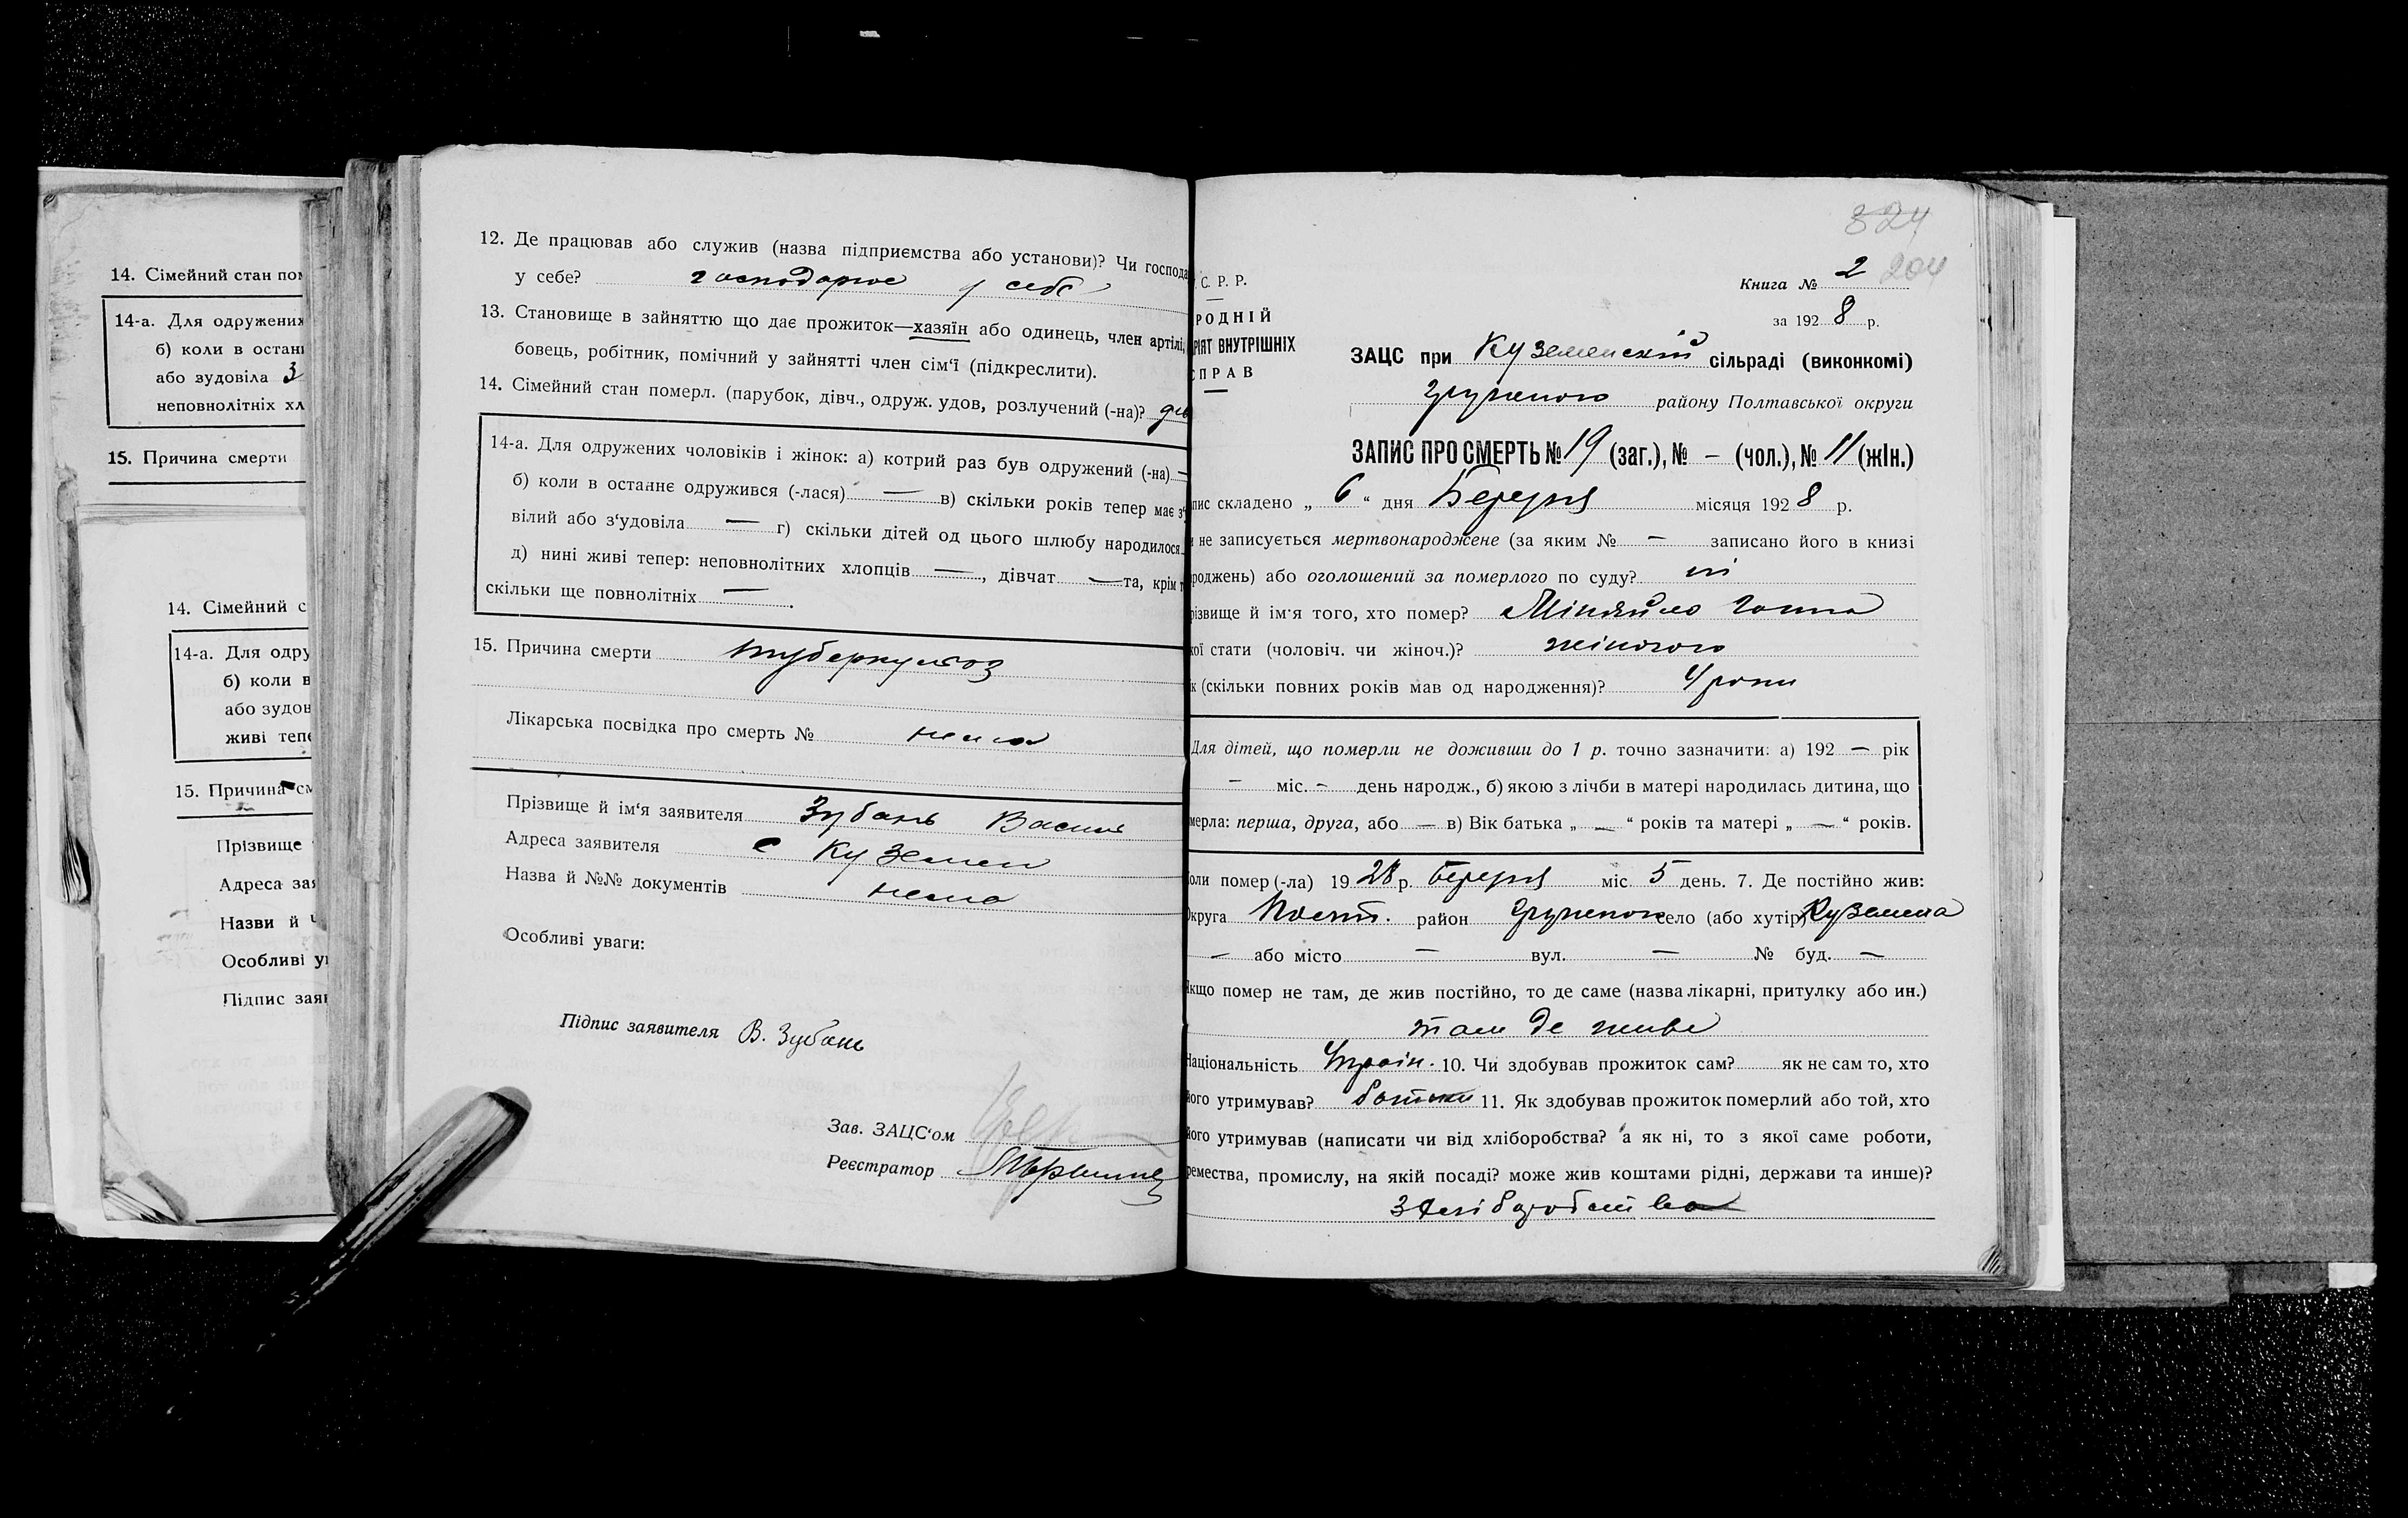 14. Сімейний стан пом
14-а. Для одружених
б) коли в останн
або вудовіла З
неповнолітніх хл
15. Причина смерти
14. Сімейний с
14-а. Для одру
б) коли в
або зудов
живі тепе
15. Причина см
Прізвище
Адреса зая
Назви й
Особливі ув
Підпис заяв
12. Де працював або служив (назва підприємства або установи)? Чи господа
у себе? господарює у себе
13. Становище в зайняттю що дає прожиток—хазяїн або одинець, член артілі,
бовець, робітник, помічний у зайнятті член сім'ї (підкреслити).
14. Сімейний стан померл. (парубок, дівч., одруж. удов, розлучений (-на)?
14-а. Для одружених чоловіків і жінок: а) котрий раз був одружений (-на) —
б) коли в останнє одружився (-лася) — в) скільки років тепер має з'у
вілий або з'удовіла — г) скільки дітей од цього шлюбу народилося
д) нині живі тепер: неповнолітних хлопців —, дівчат — та, крім т
скільки ще повнолітніх —.
15. Причина смерти туберкульоз
Лікарська посвідка про смерть № нема
Прізвище й ім'я заявителя Зубань Василь
Адреса заявителя с Куземен
Назва й №№ документів нема
Особливі уваги:
Підпис заявителя В. Зубань
Зав. ЗАЦС'ом
Реєстратор
324
204
Книга № 2
за 1928 р.
С. Р. Р.
РОДНІЙ
РІЯТ ВНУТРІШНІХ
СПРАВ
ЗАЦС при Куземенскій сільраді (виконкомі)
Груньского району Полтавської округи
ЗАПИС ПРО СМЕРТЬ № 19 (заг.), № — (чол.), № 11 (жін.)
пис складено „6“ дня Березня місяця 1928 р.
и не записується мертвонароджене (за яким № — записано його в книзі
роджень) або оголошений за померлого по суду? ні
різвище й ім'я того, хто помер? Міняйло Ганна
кої стати (чоловіч. чи жіноч.)? жіночого
к (скільки повних років мав од народження)? 4 роки
Для дітей, що померли не доживши до 1 р. точно зазначити: а) 192 — рік
— міс. — день народж., б) якою з лічби в матері народилась дитина, що
мерла: перша, друга, або — в) Вік батька „—“ років та матері „—“ років.
Коли помер (-ла) 1928 р. березня міс. 5 день. 7. Де постійно жив:
Округа Полт. район село (або хутір) Куземена
— або місто — вул. — № буд. —
Якщо помер не там, де жив постійно, то де саме (назва лікарні, притулку або ин.)
там де живе
Національність Україн. 10. Чи здобував прожиток сам? як не сам то, хто
його утримував? батьки 11. Як здобував прожиток померлий або той, хто
його утримував (написати чи від хліборобства? а як ні, то з якої саме роботи,
ремества, промислу, на якій посаді? може жив коштами рідні, держави та инше)?
з хліборобства